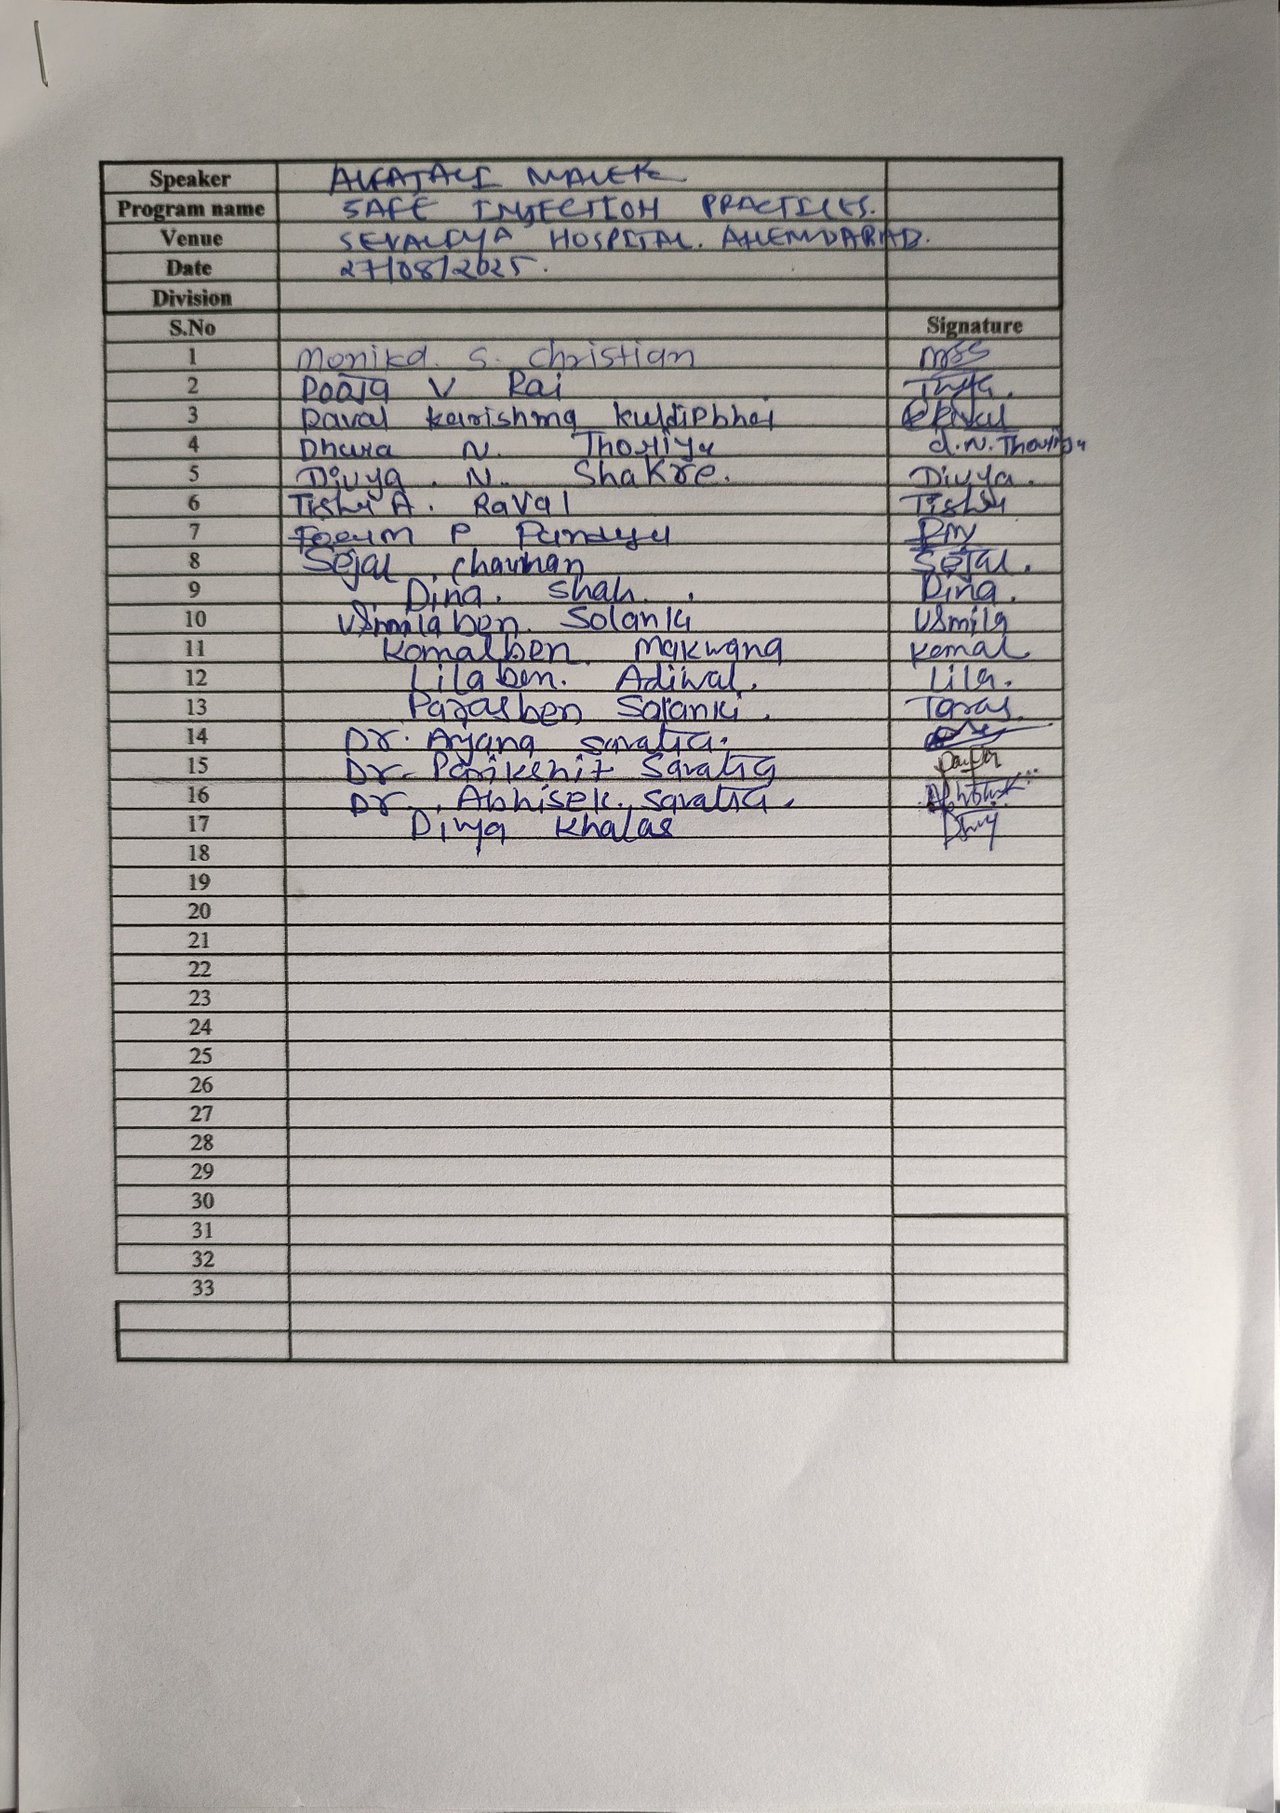 Speaker ALFAJALI MALEK
Program name SAFE INJECTION PRACTICES.
Venue SEVALAYA HOSPITAL. AHEMDABAD.
Date 27/08/2025.
Division
S.No Signature
1 Monika. S. Christian
2 Pooja V Rai
3 Raval karishma kuldipbhai
4 Dhara N. Thoriya d.N.Thoriya
5 Divya. N. Shakre. Divya.
6 Tisha A. Raval Tisha
7 Forum P Pandya
8 Sejal chauhan Sejal.
9 Dina. Shah. Dina.
10 Urmilaben. Solanki Urmila
11 Komalben Makwana Komal
12 Lilaben. Adiwal. Lila.
13 Parasben Solanki. Paras.
14 Dr. Ayana
15 Dr. Parikshit
16 Dr. Abhisek.
17 Divya Khalas
18
19
20
21
22
23
24
25
26
27
28
29
30
31
32
33